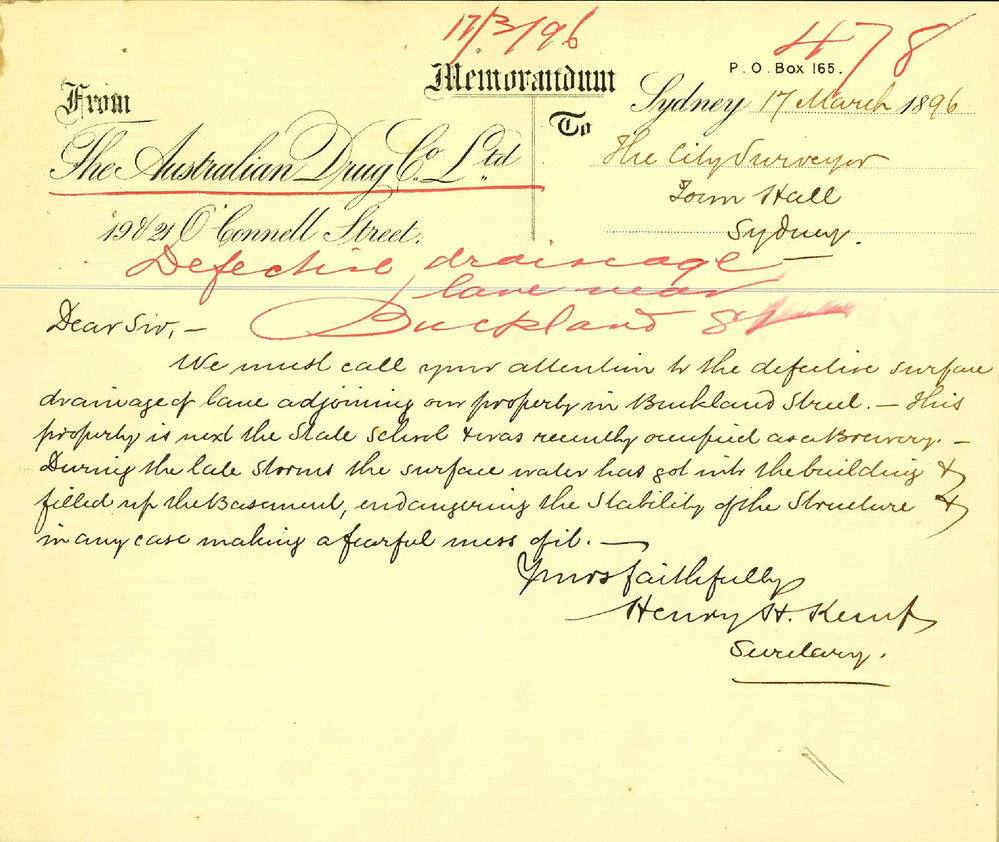 17/3/96
478
Memorandum
P. O. Box 165.
From
Sydney 17 March 1896
To
The Australian Drug Co. Ltd.
The City Surveyor
Town Hall
Sydney.
19 & 21 O'Connell Street.
Defective drainage
lane near
Buckland St
Dear Sir, —
We must call your attention to the defective surface
drainage of lane adjoining our property in Buckland Street. — This
property is next the State School & was recently occupied as a Brewery. —
During the late storms the surface water has got into the building &
filled up the Basement, endangering the Stability of the Structure &
in any case making a fearful mess of it. —
Yours faithfully
Henry H. Kemp
Secretary.